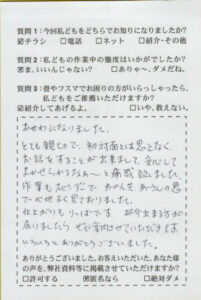 質問1:今回私どもをどちらでお知りになりましたか?
☑チラシ □電話 □ネット □紹介・その他
質問2:私どもの作業中の態度はいかがでしたか?
☑ま、いいんじゃない? □ありゃ~、ダメだね。
質問3:畳やフスマでお困りの方がいらっしゃったら、
私どもをご推薦いただけますか?
☑紹介してあげるよ。 □いや、教えない。
お世わになりました。
とても親切で、初対面とは思えなく、
お話をすることが出来まして、安心して
まかせられるなぁ~と痛感致しました。
作業もスピーディで、あうん
で心地よく見ておりました。
仕上がりもりっぱです。紹介出来る方が
居りましたら、ぜひ案内させていただきます
いろいろとありがとうございました。
ありがとうございました。お答えいただいた、あなた様
の声を、弊社資料等に掲載させていただけますか?
□許可する ☑匿名なら □絶対ダメ